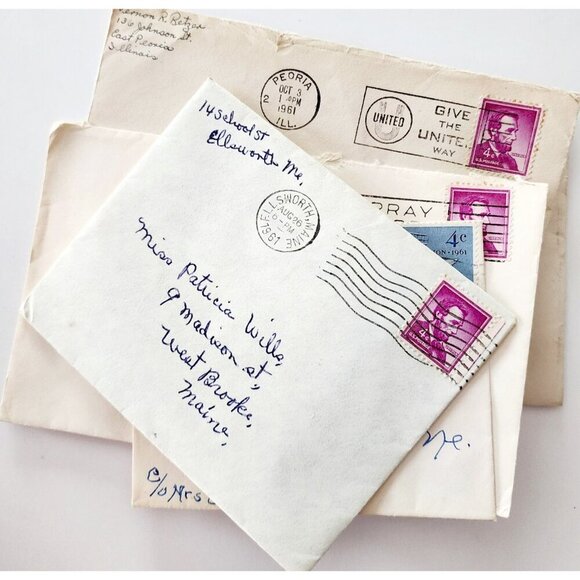 Vernon R. Betzer
136 Johnson St.
East Peoria
Illinois
PEORIA
OCT 3
2 1 PM
1961
ILL.
UNITED
GIVE
THE
UNITED
WAY
4¢
U.S. POSTAGE
14 School St
Ellsworth Me,
ELLSWORTH, MAINE
AUG 26
6 - PM
1961
PRAY
4¢
1961
Miss Patricia Wills,
9 Madison St,
West Brooke,
Maine,
Me.
c/o Mrs